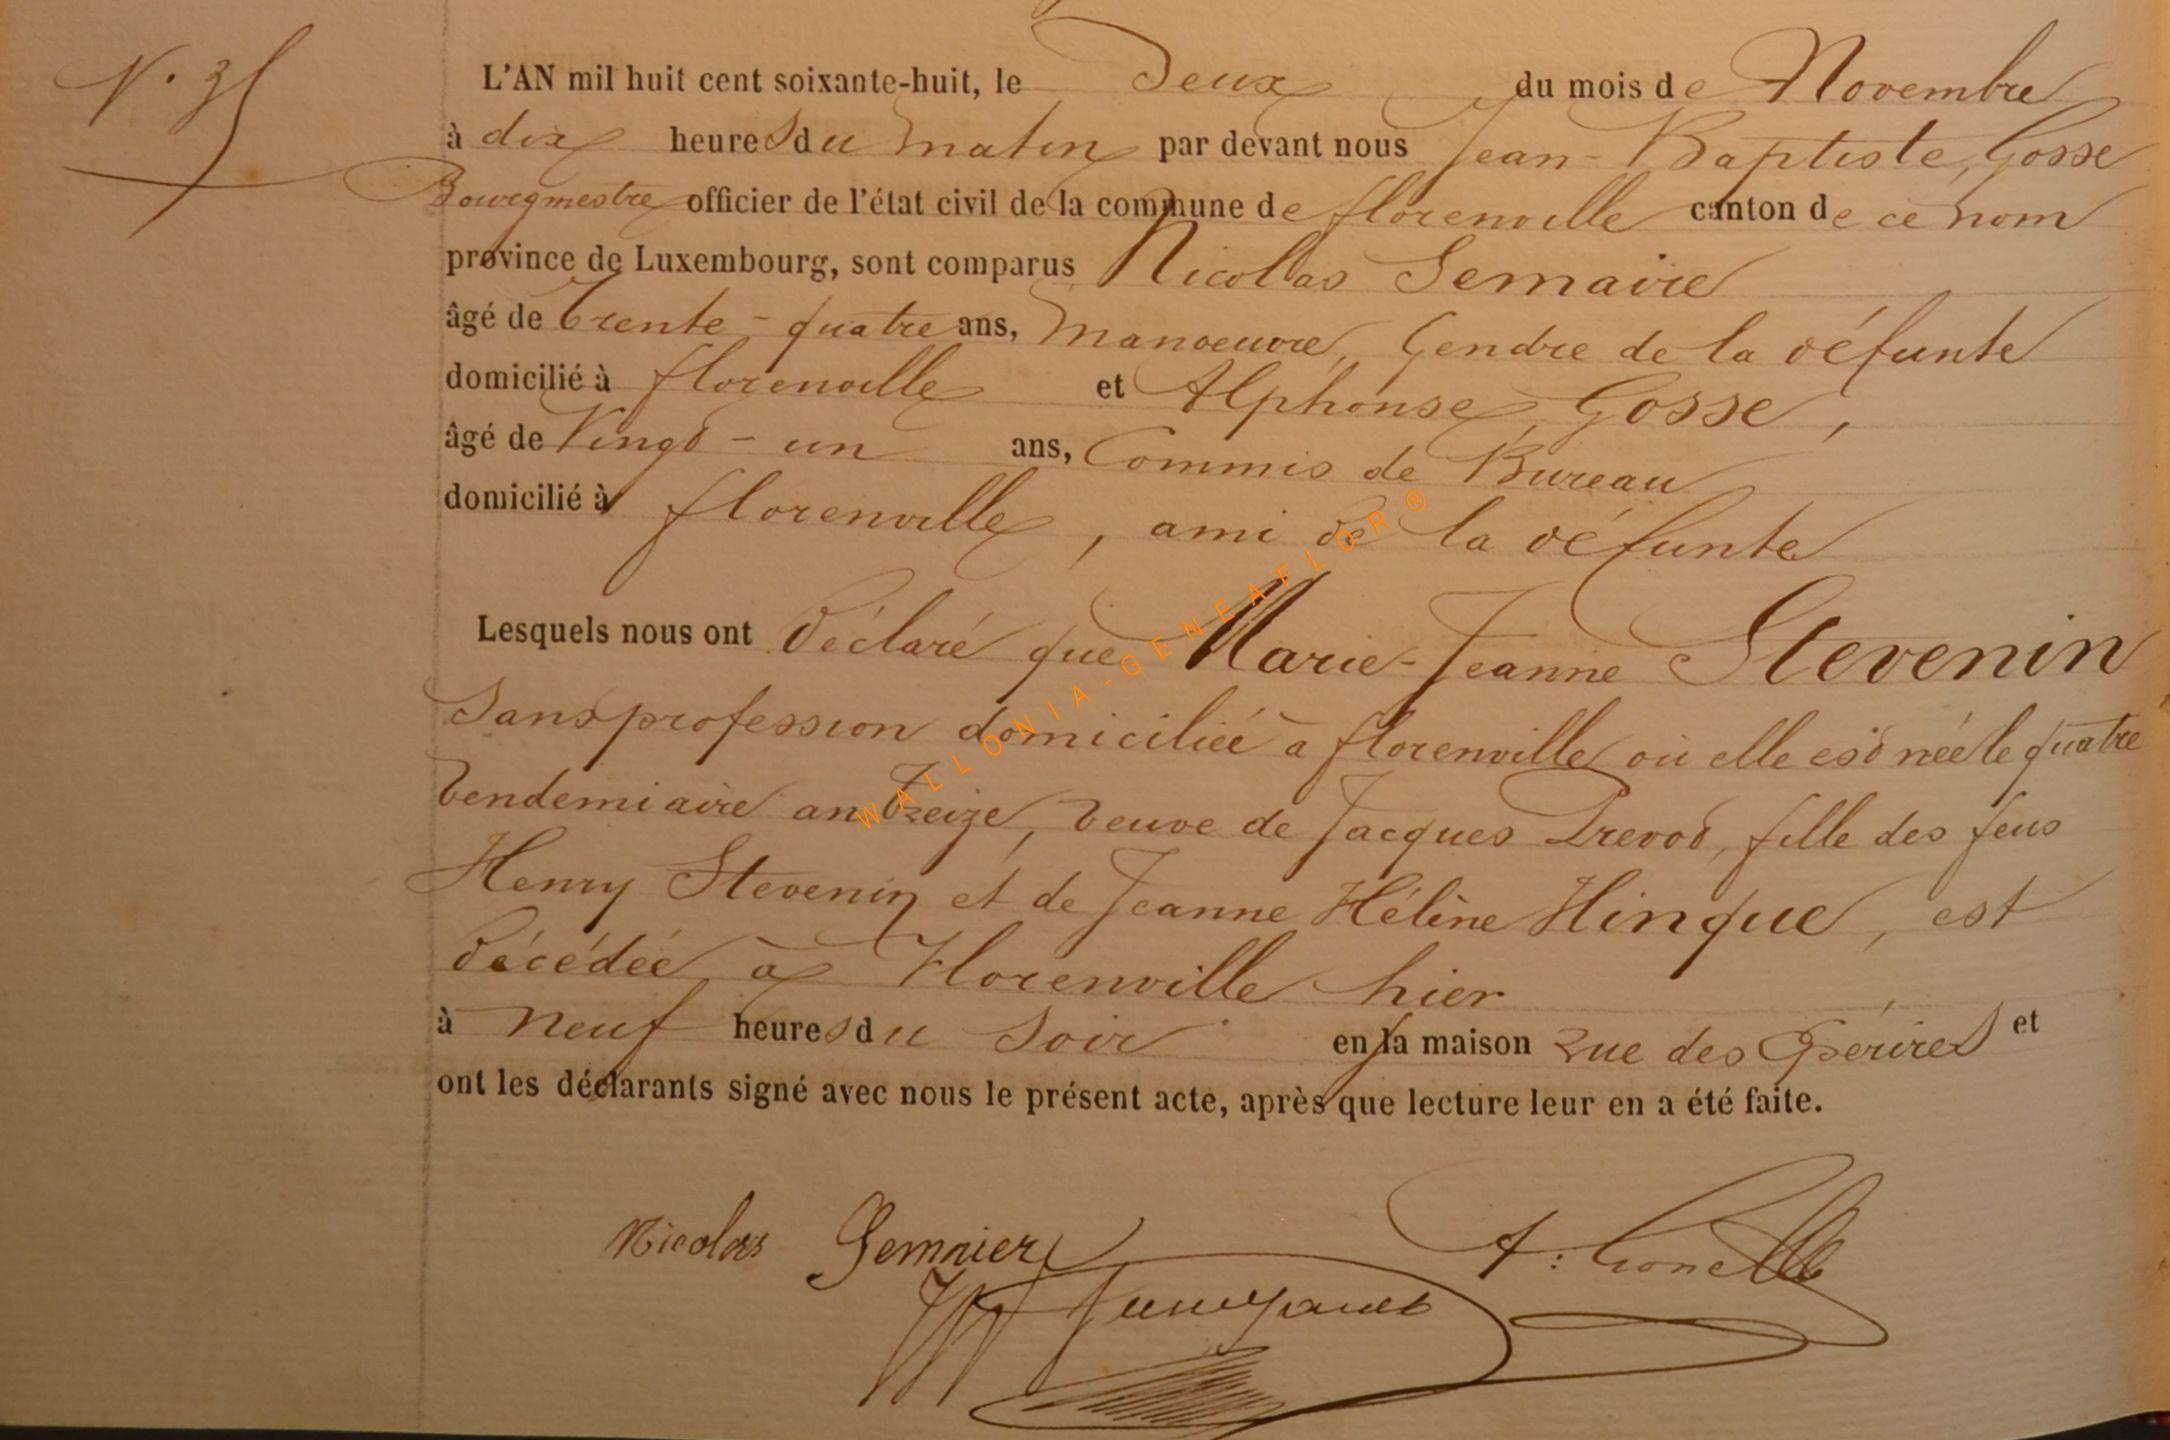 N.° 35
L'AN mil huit cent soixante-huit, le Deux du mois de Novembre
à dix heures du matin par devant nous Jean-Baptiste, Gosse
Bourgmestre officier de l'état civil de la commune de florenville canton de ce nom
province de Luxembourg, sont comparus Nicollas Semaire
âgé de Trente-quatre ans, Manoeuvre, Gendre de la défunte
domicilié à florenville et Alphonse, Gosse,
âgé de Vingt-un ans, Commis de Bureau
domicilié à florenville, ami de la défunte
Lesquels nous ont Déclaré que Marie-Jeanne Stevenin
Sans profession domiciliée à florenville où elle est née le quatre
Vendemiaire an treize, Veuve de Jacques Prevot, fille des feus
Henry Stevenin et de Jeanne Hélène Hinque, est
Décédée à Florenville hier
à neuf heures du Soir en la maison rue des et
ont les déclarants signé avec nous le présent acte, après que lecture leur en a été faite.
Nicolas A:
WALLONIA-GENEAFLOR®